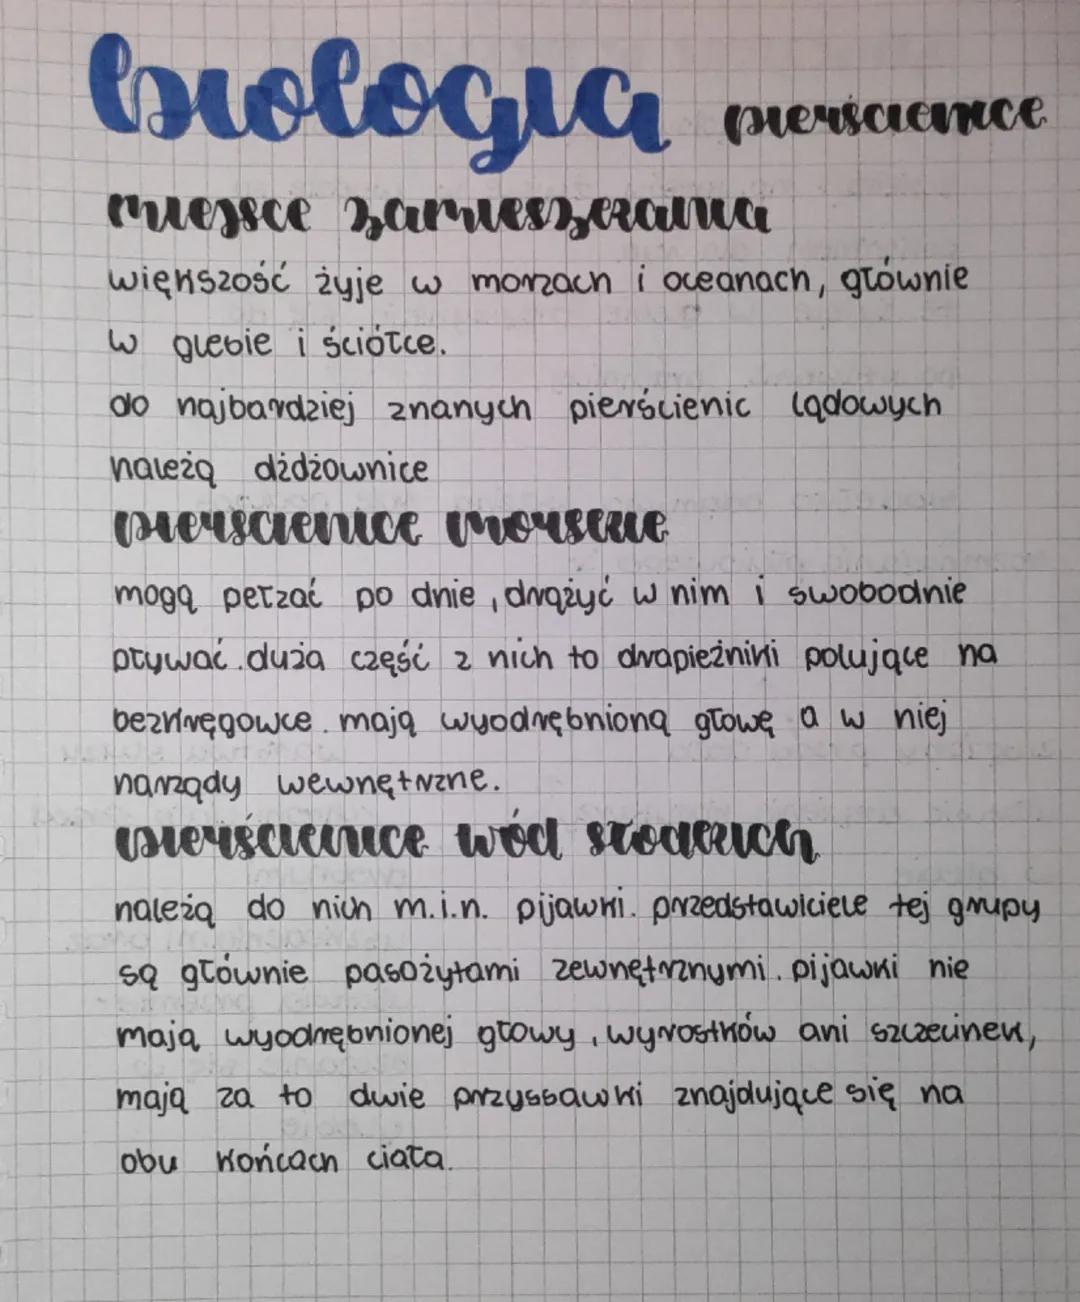 biologia pierścienice
miejsce zamieszkania
większość żyje w morzach i oceanach, głównie
w glebie i ściółce.
do najbardziej znanych pierścienic lądowych
należą dżdżownice
pierscienice morskie
mogą pełzać po dnie, drążyć w nim i swobodnie
pływać. duża część z nich to drapieżniki polujące na
bezkręgowce. mają wyodrębnioną głowę a w niej
narządy wewnętrzne.
pierścienice wód słodkich
należą do nich m.i.n. pijawki. przedstawiciele tej grupy
są głównie pasożytami zewnętrznymi. pijawki nie
mają wyodrębnionej głowy, wyrostków ani szczecinek,
mają za to dwie przyssawki znajdujące się na
obu końcach ciała.